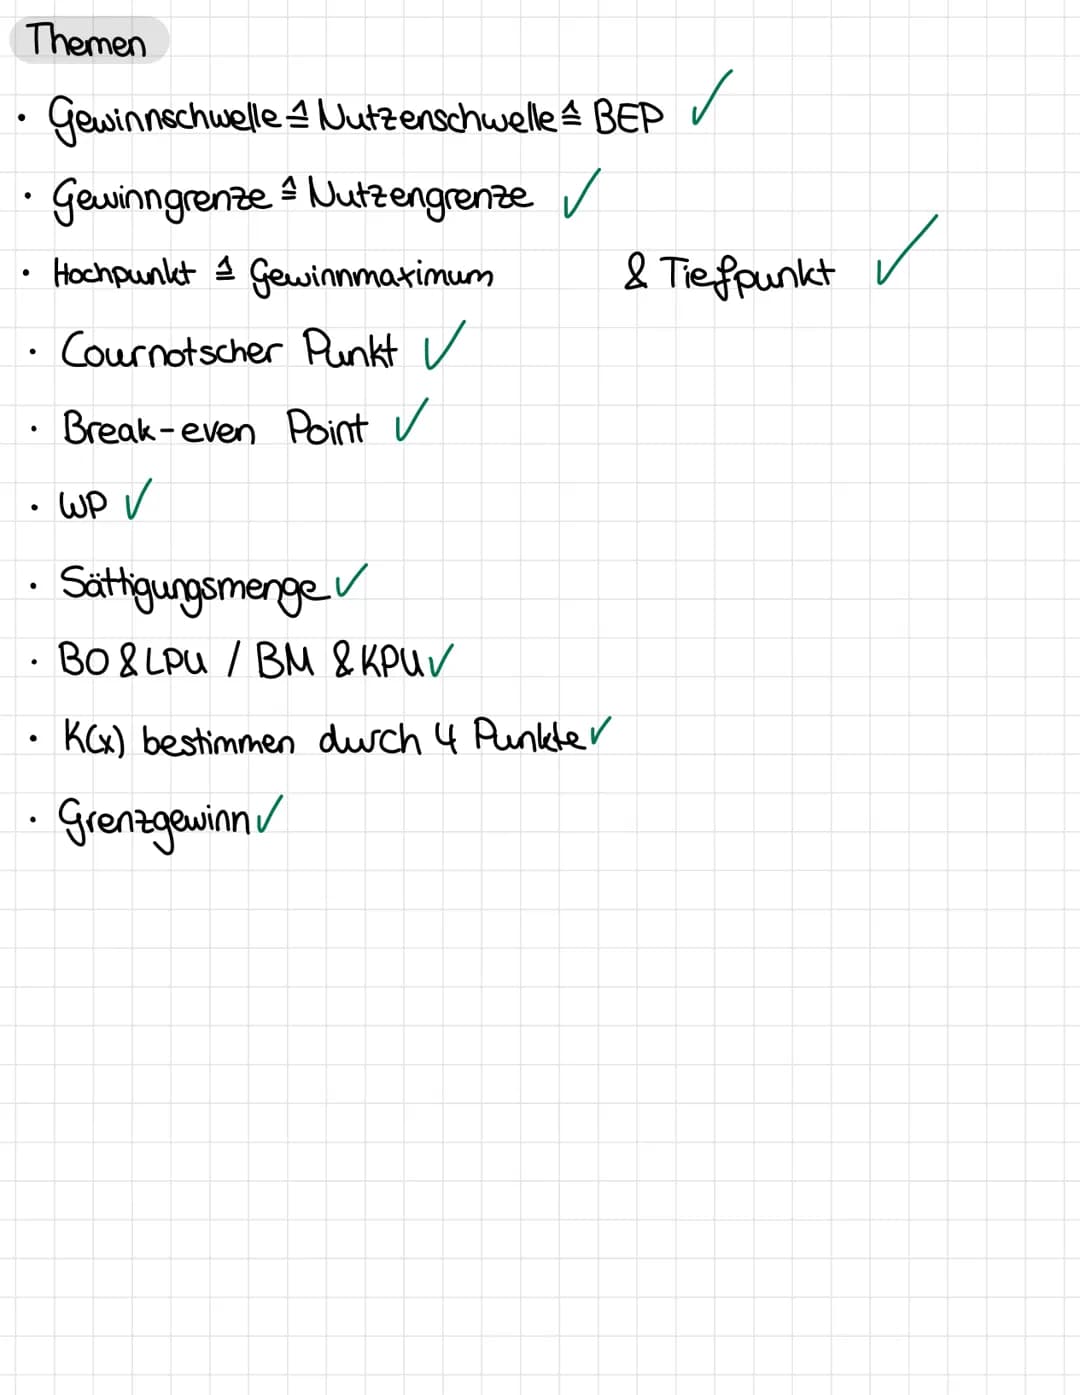 Themen
• Gewinnschwelle ≙ Nutzenschwelle ≙ BEP ✓
• Gewinngrenze ≙ Nutzengrenze ✓
• Hochpunkt ≙ Gewinnmaximum & Tiefpunkt ✓
• Cournotscher Punkt ✓
• Break-even Point ✓
• WP ✓
• Sättigungsmenge ✓
• BO & LPU / BM & KPU ✓
• K(x) bestimmen durch 4 Punkte ✓
• Grenzgewinn ✓